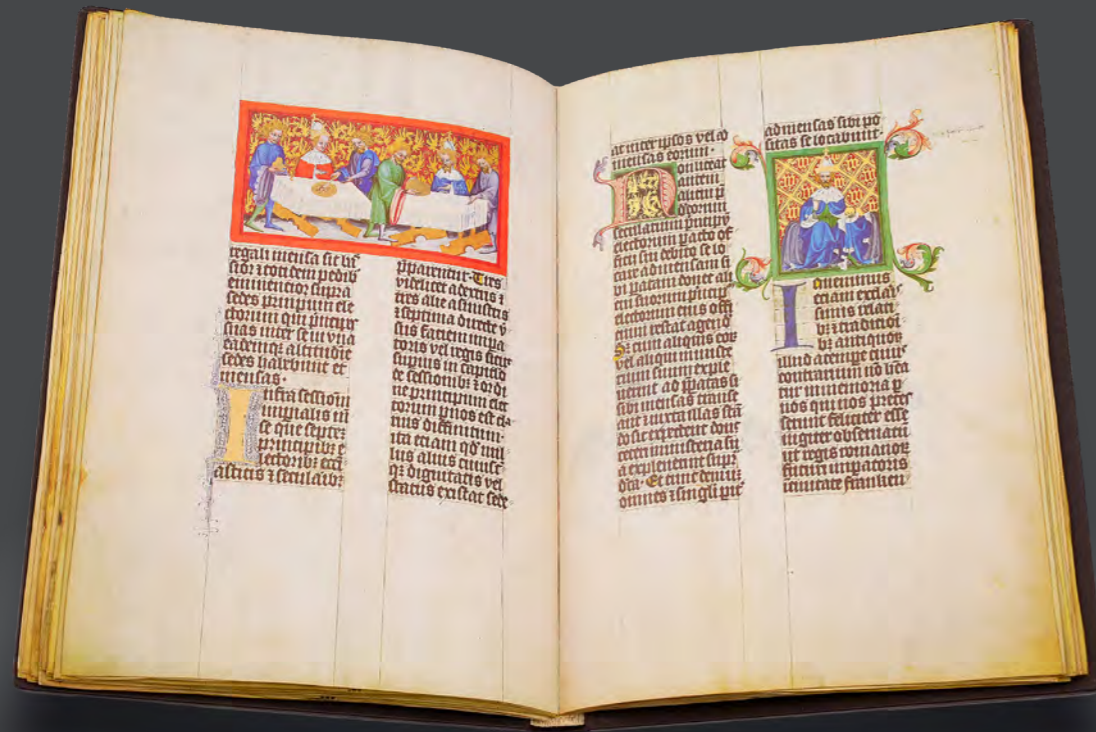 regali mensa sit bas
sior ⁊ totidem pedib
eminentior supra
sedes principum ele
ctorum qui principes
suas inter se in vna
eademqz altitudie
sedes habebunt et
mensas.
Infra sessionem
imperialis m
se que septez
principibz e
lectoribz eccl
asticis ⁊ secularibz
pparentur. Tres
videlicet a dextris ⁊
tres alie a sinistris
⁊ septima directe v
sus faciem impera
toris vel regis sicut
superius in capitulo
de sessionibz ⁊ ordi
ne principum elec
torum p nos est cla
rius diffinitum.
ita eciam qd nul
lus alius cuiusc
qz dignitatis vel
status existat sede
at inter ipsos vel ad
mensas eorum.
Non liceat
autem
alicui p
dictorum
secularium principum
electorum pacto of
ficii sui debito se lo
care ad mensam si
bi patam donec ali
cui suorum princip
electorum eius offi
cium restat agend
Set cum aliquis eor
vel aliqui ministe
rium suum exple
verint ad ppatas si
bi mensas transe
ant ⁊ iuxta illas stan
do expectent donec
ceteri misteria su
a expleverint supra
dicta. Et tunc demum
omnes ⁊ singuli pit
ad mensas sibi po
sitas se locabunt.
Inuenimus
eciam ex clar
issimis relati
bz ⁊ tradicioni
bz antiquor
illud a tempe cuius
contrarium no hea
tur in memoria p
nos qui nos preces
serunt feliciter esse
iugiter obseruatum
ut regis romanor
futuri imperatoris
in ciuitate franken